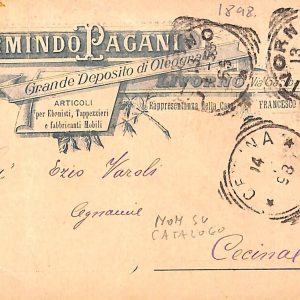 1898.
EMINDO PAGANI
Grande Deposito di Oleogra
LIVORNO
ARTICOLI
per Ebonisti, Tappezzieri
e fabbricanti Mobili
Rappresentanza della Casa
FRANCESCO
CECINA
14
85
Ezio Varoli
NON SU
CATALOGO
Cecina